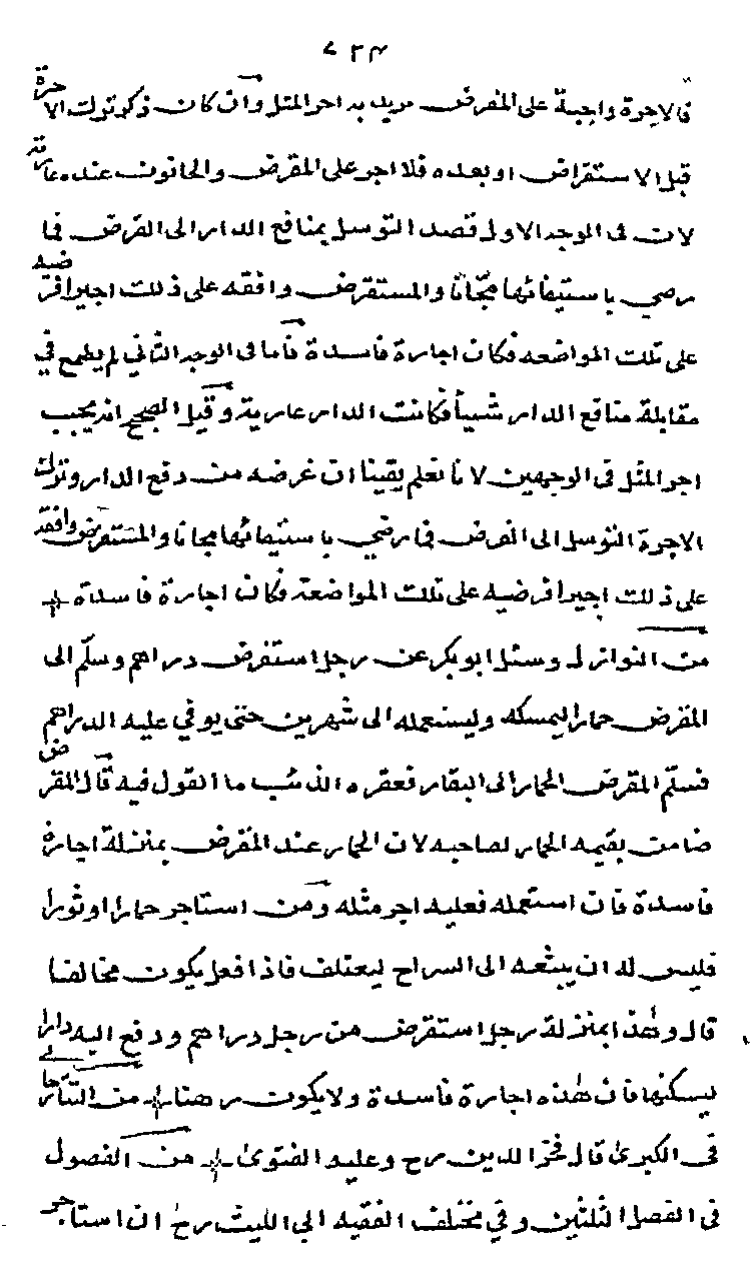 ٧٣٤
فالاجرة واجبة على المقرض يريد به اجر المثل وان كان ذكر ترك الاجرة
قبل الاستقراض او بعده فلا اجر على المقرض والحانوت عنده عارية
لان فى الوجه الاول قصد التوسل بمنافع الدار الى القرض فما
رضي باستيفائها مجّانا والمستقرض وافقه على ذلك اجيرا فرضيه
على تلك المواضعه فكان اجارة فاسدة فأما فى الوجه الثاني لم يطمع في
مقابلة منافع الدار شيئا فكانت الدار عارية وقيل الصحيح انه يجب
اجر المثل فى الوجهين لانا نعلم يقينا ان غرضه من دفع الدار وترك
الاجرة التوسل الى القرض فما رضي باستيفائها مجانا والمستقرض وافقه
على ذلك اجيرا فرضيه على تلك المواضعة فكان اجارة فاسدة
من النوازل وسئل ابو بكر عن رجل استقرض دراهم وسلّم الى
المقرض حمارا ليمسكه وليستعمله الى شهرين حتى يوفي عليه الدراهم
فسلّم المقرض الحمار الى البقار فعقره الذئب ما القول فيه قال المقرض
ضامن بقيمه الحمار لصاحبه لان الحمار عند المقرض بمنزلة اجارة
فاسدة فان استعمله فعليه اجر مثله ومن استاجر حمارا او ثورا
فليس له ان يبعثه الى السراح ليعتلف فاذا فعل يكون مخالفا
قال وهذا بمنزلة رجل استقرض من رجل دراهم ودفع اليه دارا
ليسكنها فان هذه اجارة فاسدة ولا يكون رهنا من
فى الكبرى قال فخر الدين رح وعليه الفتوى من الفصول
فى الفصل الثلثين وفي مختلف الفقيه ابي الليث رح ان استاجر